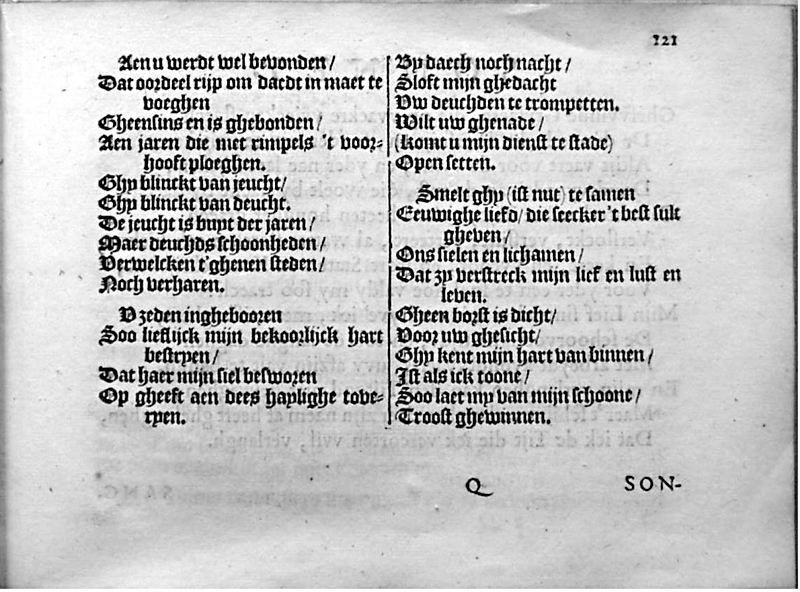 121
Aen u werdt wel bevonden /
Dat oordeel rijp om daedt in maet te
voeghen
Gheensins en is ghebonden /
Aen jaren die met rimpels 't voor-
hooft ploeghen.
Ghy blinckt van jeucht /
Ghy blinckt van deucht.
De jeucht is buyt der jaren /
Maer deuchds schoonheden /
Verwelcken t'ghenen steden /
Noch verharen.
V zeden inghebooren
Soo lieflijck mijn bekoorlijck hart
bestrpen /
Dat haer mijn siel besworen
Op gheeft aen dees haplighe tove-
rpen.
By daech noch nacht /
Sloft mijn ghedacht
Vw deuchden te trompetten.
Wilt uw ghenade /
(komt u mijn dienst te stade)
Open setten.
Smelt ghy (ist nut) te samen
Eeuwighe liefd / die seecker 't best sult
gheven /
Ons sielen en lichamen /
Dat zy verstreck mijn lief en lust en
leven.
Gheen borst is dicht /
Voor uw ghesicht /
Ghy kent mijn hart van binnen /
Ist als ick toone /
Soo laet my van mijn schoone /
Troost ghewinnen.
Q SON-